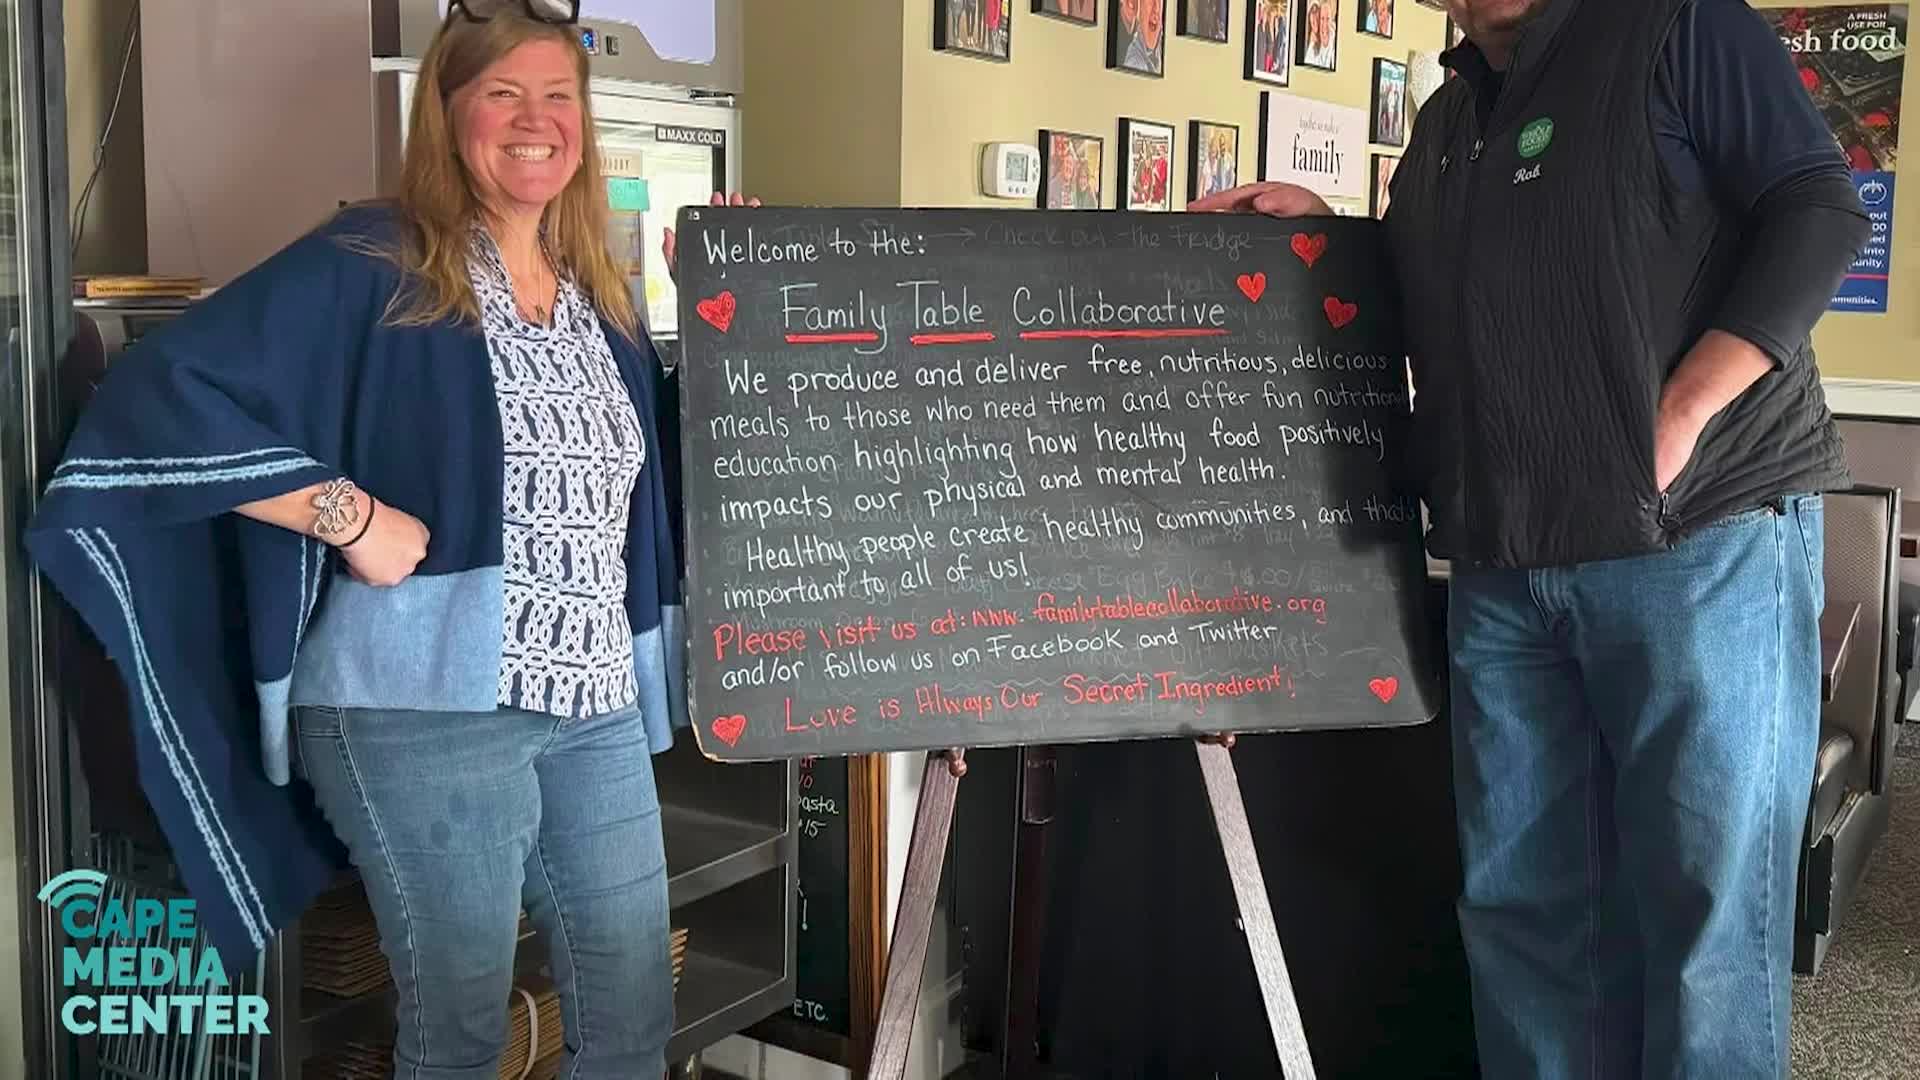 A FRESH
USE FOR
esh food
MAXX COLD
family
WHOLE
FOODS
MARKET
Rob
Welcome to the:
Check out the Fridge
Family Table Collaborative
We produce and deliver free, nutritious, delicious
meals to those who need them and offer fun nutrition
education highlighting how healthy food positively
impacts our physical and mental health.
Healthy people create healthy communities, and that's
important to all of us!
Please visit us at: www.familytablecollaborative.org
and/or follow us on Facebook and Twitter
Love is Always Our Secret Ingredient!
asta
15-
ETC.
into
unity.
munities.
CAPE
MEDIA
CENTER